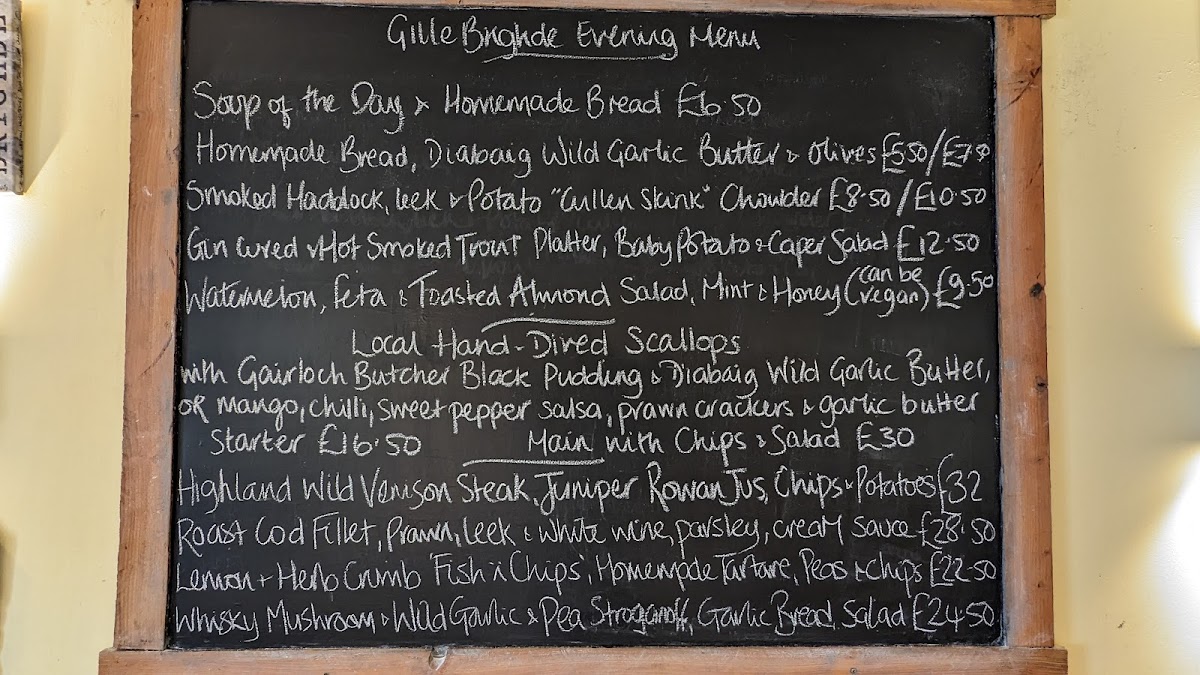 Gille Brighde Evening Menu
Soup of the Day & Homemade Bread £6.50
Homemade Bread, Diabaig Wild Garlic Butter & Olives £5.50/£7.50
Smoked Haddock, leek & Potato "Cullen Skink" Chowder £8.50/£10.50
Gin Cured & Hot Smoked Trout Platter, Baby Potato & Caper Salad £12.50
Watermelon, feta & Toasted Almond Salad, Mint & Honey (can be vegan) £9.50
Local Hand-Dired Scallops
with Gairloch Butcher Black Pudding & Diabaig Wild Garlic Butter,
OR mango, chilli, sweet pepper salsa, prawn crackers & garlic butter
Starter £16.50 Main with Chips & Salad £30
Highland Wild Venison Steak, Juniper Rowan Jus, Chips & Potatoes £32
Roast Cod Fillet, Prawn, leek & white wine, parsley, cream sauce £28.50
Lemon + Herb Crumb 'Fish & Chips', Homemade Tartare, Peas & chips £22.50
Whisky Mushroom & Wild Garlic & Pea Stroganoff, Garlic Bread, Salad £24.50